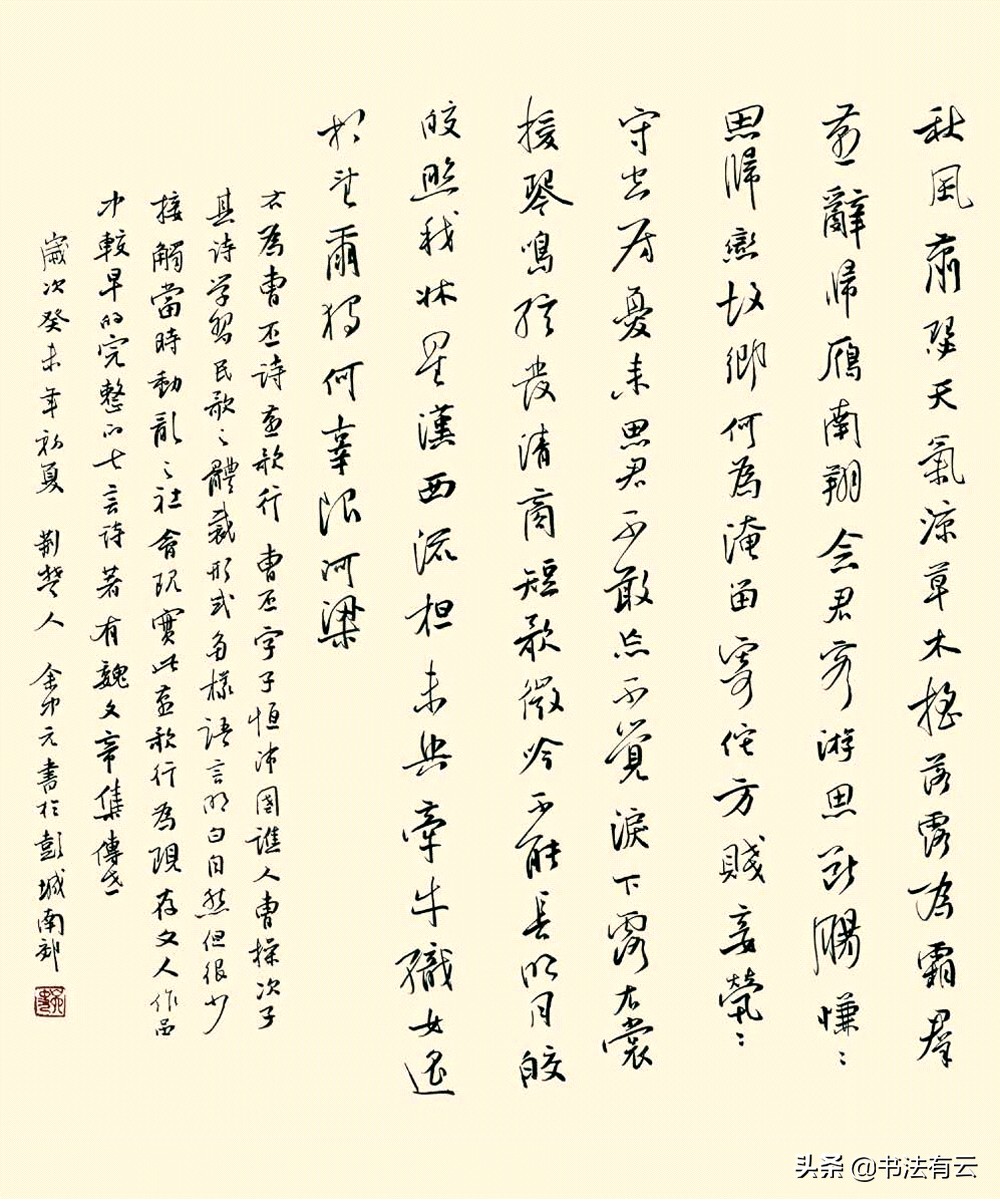 秋風蕭瑟天氣涼草木搖落露為霜羣
燕辭歸鴈南翔念君客游思斷腸慊〻
思歸戀故鄉何為淹留寄佗方賤妾煢〻
守空房憂来思君不敢忘不覺淚下霑衣裳
援琴鳴弦發清商短歌微吟不能長明月皎
皎照我牀星漢西流夜未央牽牛織女遙
相望爾獨何辜限河梁
右為曹丕詩燕歌行 曹丕字子恒沛國譙人曹操次子
其诗学習民歌〻體裁形式多樣語言明白自然但很少
接觸當時動亂〻社會現實此燕歌行為現存文人作品
中較早的完整的七言詩著有魏文帝集傳世
歲次癸未年初夏 荆楚人 余印元書於彭城南郊
头条 @书法有云